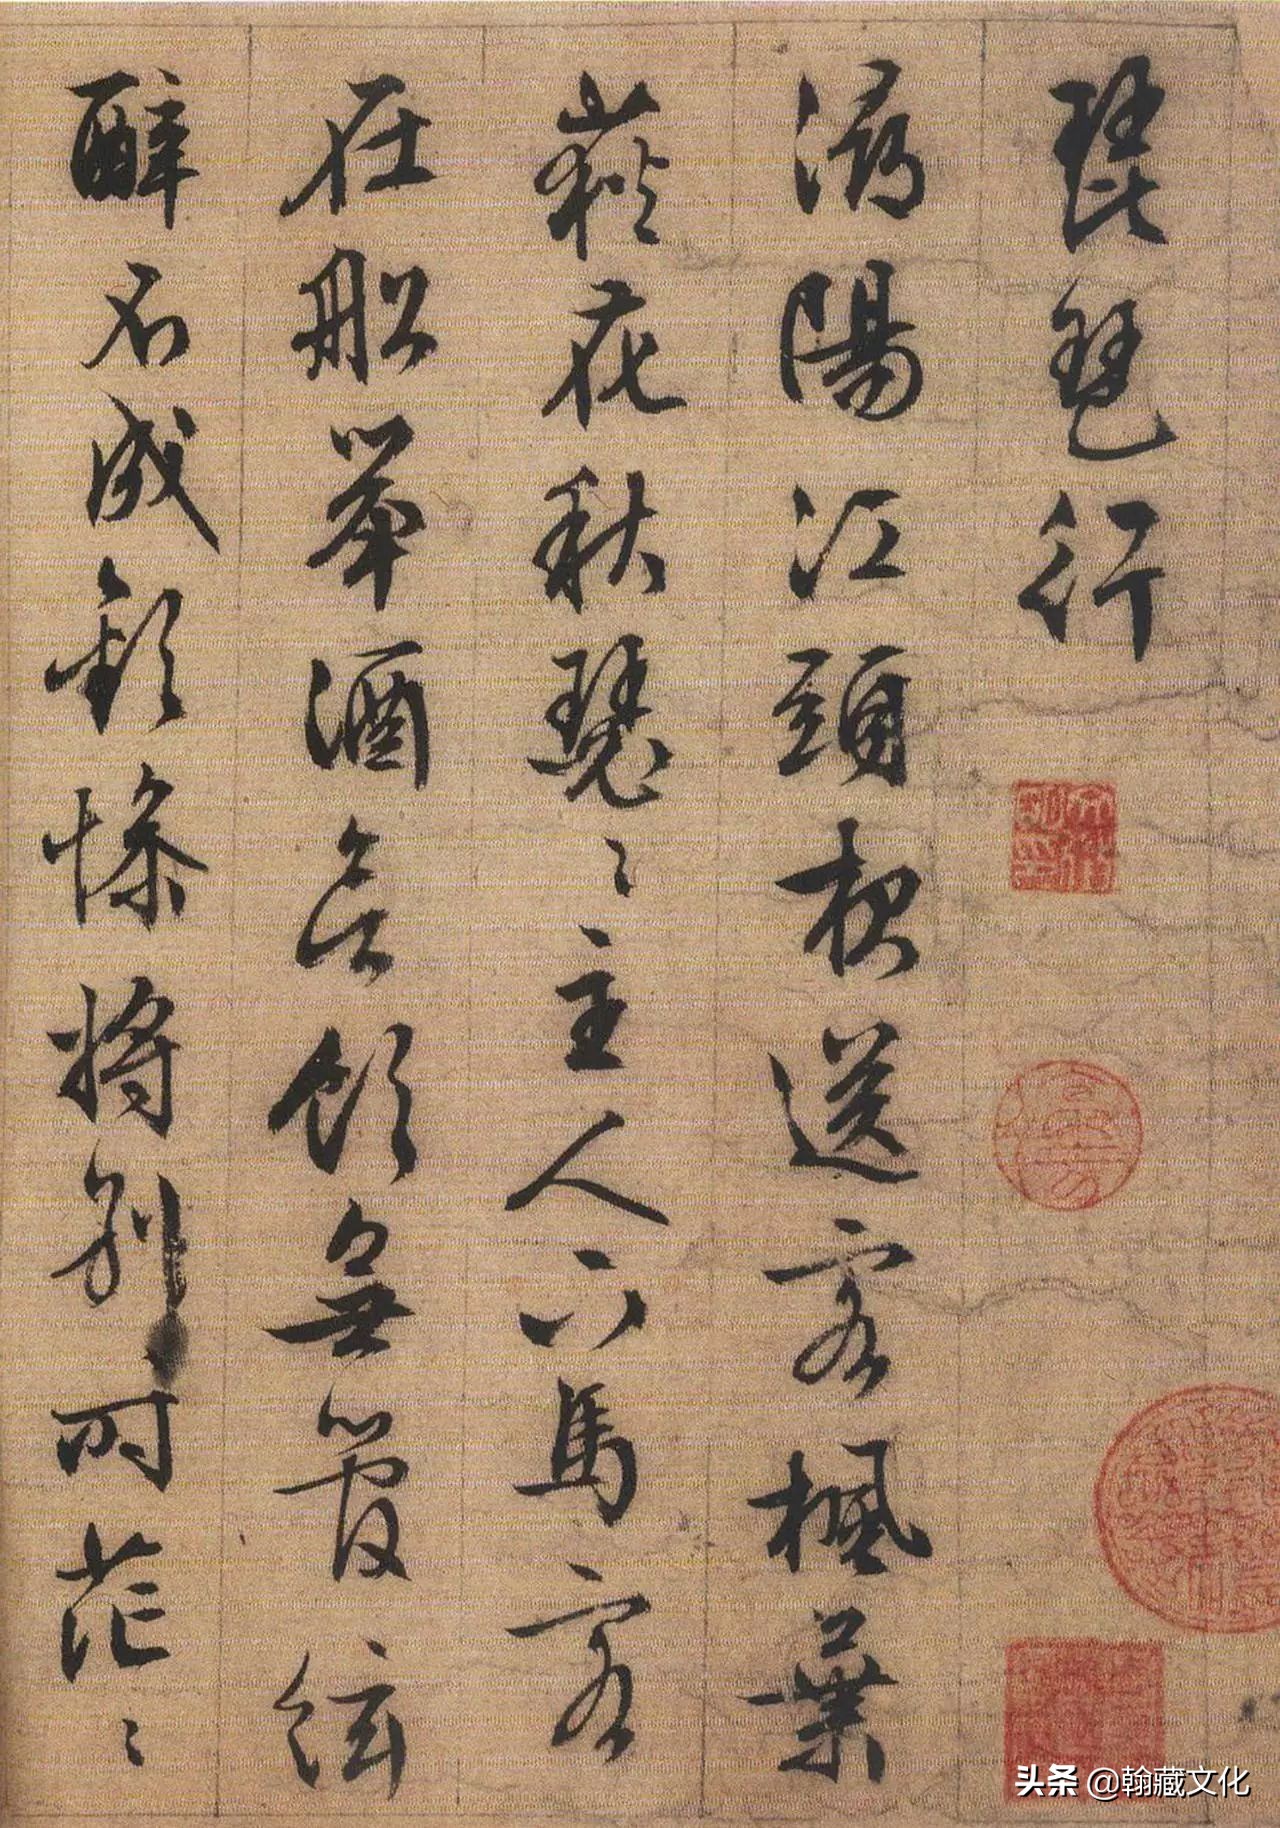 琵琶行
潯陽江頭夜送客楓葉
荻花秋瑟〻主人下馬客
在船舉酒欲飲無管絃
醉不成歡慘將別時茫〻
头条 @翰藏文化